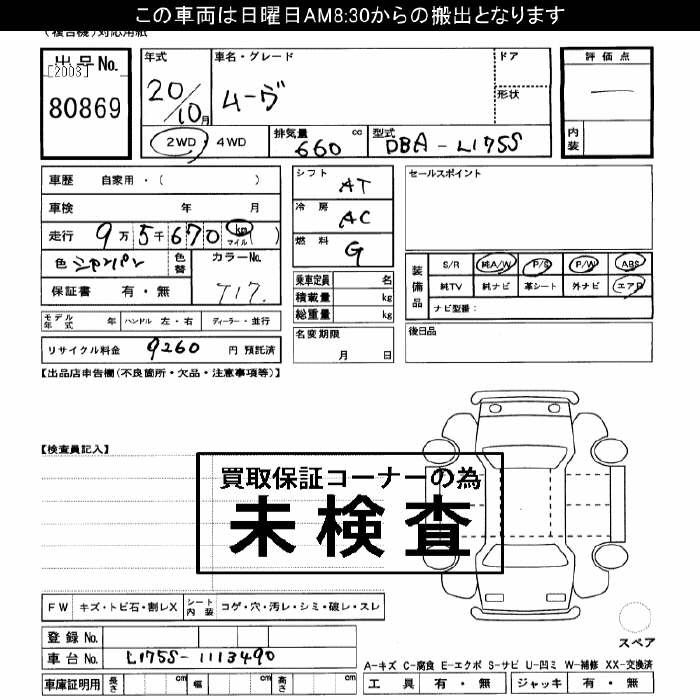 この車両は日曜日AM8:30からの搬出となります
(複合機)対応用紙
出品No.
[2003]
80869
年式
20/10月
車名・グレード
ムーヴ
ドア
形状
評価点
―
内装
2WD・4WD
排気量 660 cc
型式 DBA-L175S
車歴 自家用・( )
車検 年 月
走行 9万5千670 km マイル ( )
色 シャンパン
色替
カラーNo.
T17.
保証書 有・無
シフト AT
冷房 AC
燃料 G
乗車定員 名
積載量 kg
総重量 kg
セールスポイント
装備品
S/R 純A/W P/S P/W ABS
純TV 純ナビ 革シート 外ナビ エアB
ナビ型番:
モデル年式 年 ハンドル 左・右 ディーラー・並行
名変期限
月 日
後日品
リサイクル料金 9260 円 預託済
【出品店申告欄(不良箇所・欠品・注意事項等)】
【検査員記入】
買取保証コーナーの為
未検査
FW キズ・トビ石・割レX シート内装 コゲ・穴・汚レ・シミ・破レ・スレ
登録No.
車台No. L175S-1113490
車庫証明用 長さ cm 幅 cm 高さ cm
スペア
A-キズ C-腐食 E-エクボ S-サビ U-凹ミ W-補修 XX-交換済
工具 有・無 ジャッキ 有・無